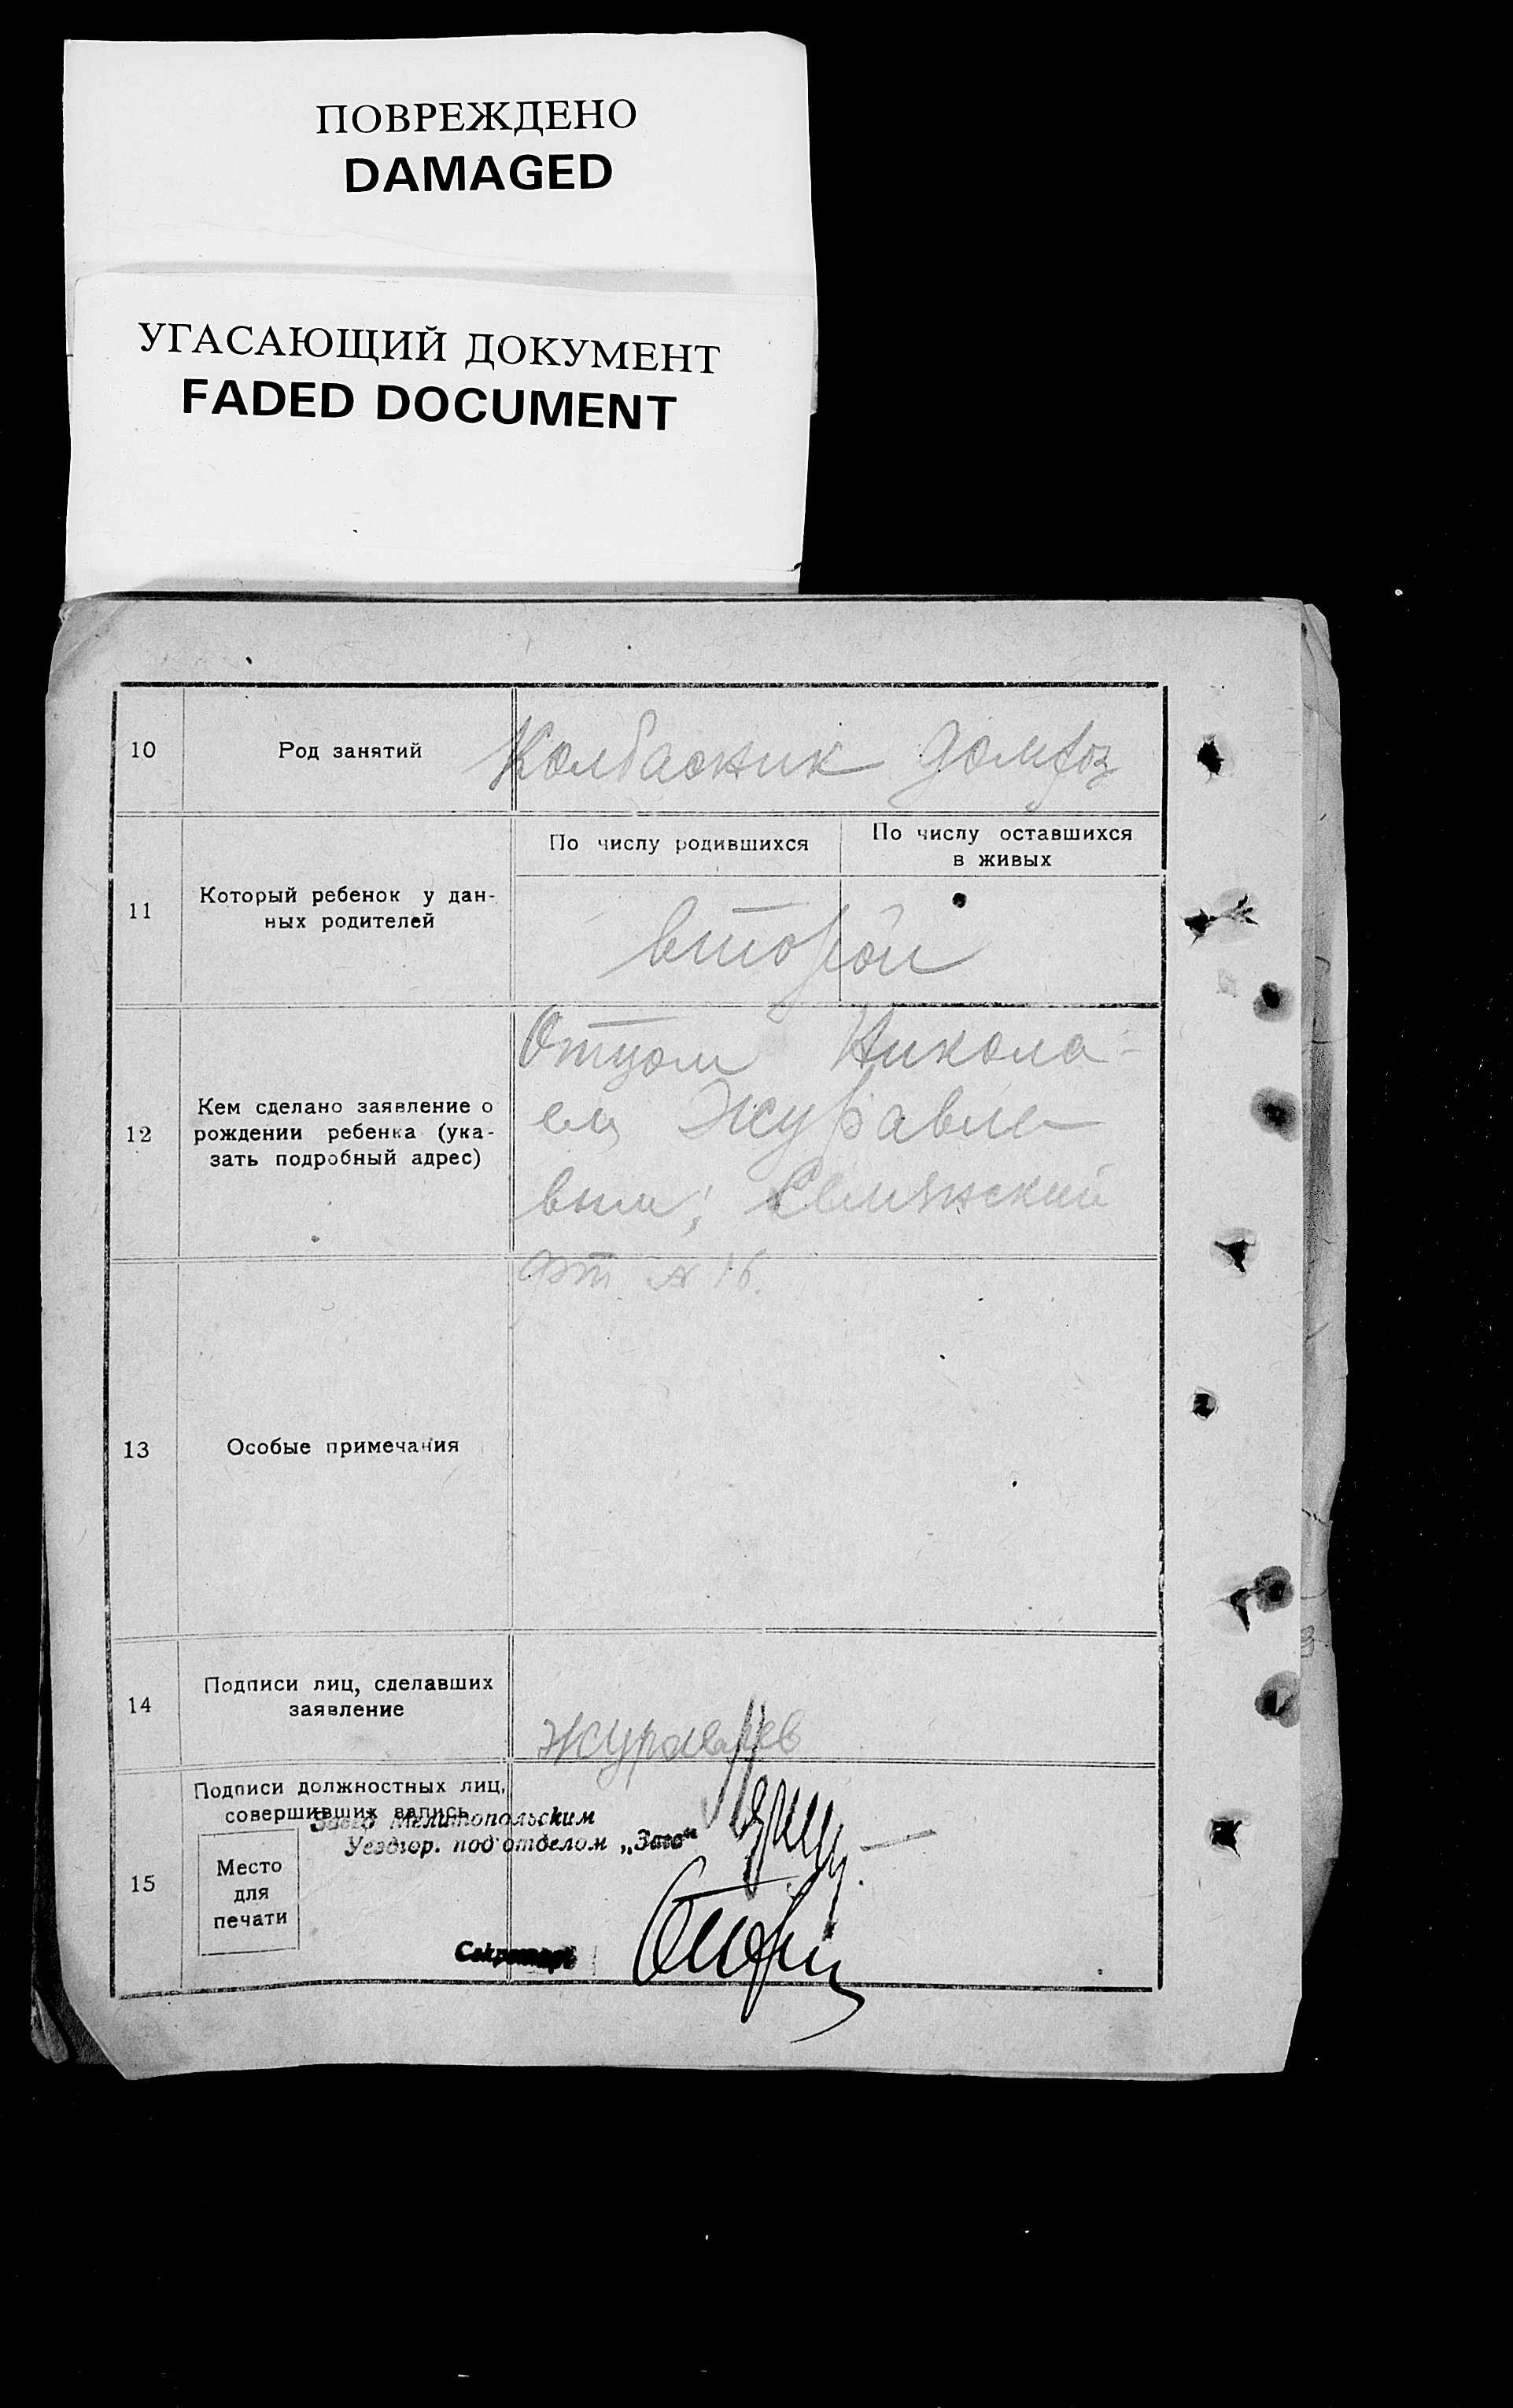 ПОВРЕЖДЕНО
DAMAGED
УГАСАЮЩИЙ ДОКУМЕНТ
FADED DOCUMENT
10
Род занятий
Колбасник
домхоз
11
Который ребенок у дан-
ных родителей
По числу родившихся
По числу оставшихся
в живых
второй
12
Кем сделано заявление о
рождении ребенка (ука-
зать подробный адрес)
Отцом Никола-
ем Журавле
вым;
№ 16
13
Особые примечания
14
Подписи лиц, сделавших
заявление
Журавлев
15
Подписи должностных лиц,
совершивших запись
Завед Мелитопольским
Уездгор. под'отделом „Загс"
Место
для
печати
Секретарь